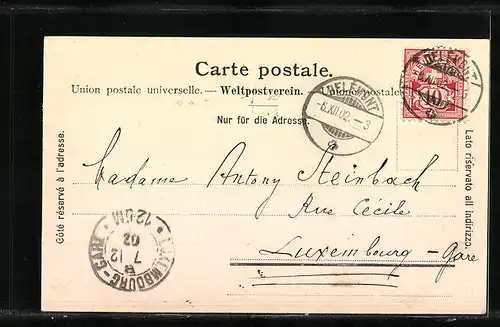 Carte postale.
Union postale universelle. — Weltpostverein. — Unione postale
Nur für die Adresse.
DELÉMONT
6.XII.02.–3
DELÉMONT
6.XII.02.–3
10
Côté réservé à l'adresse.
Lato riservato all indirizzo.
Madame Antony Steinbach
Rue Cécile
Luxembourg-Gare
LUXEMBOURG-GARE
7 12
02